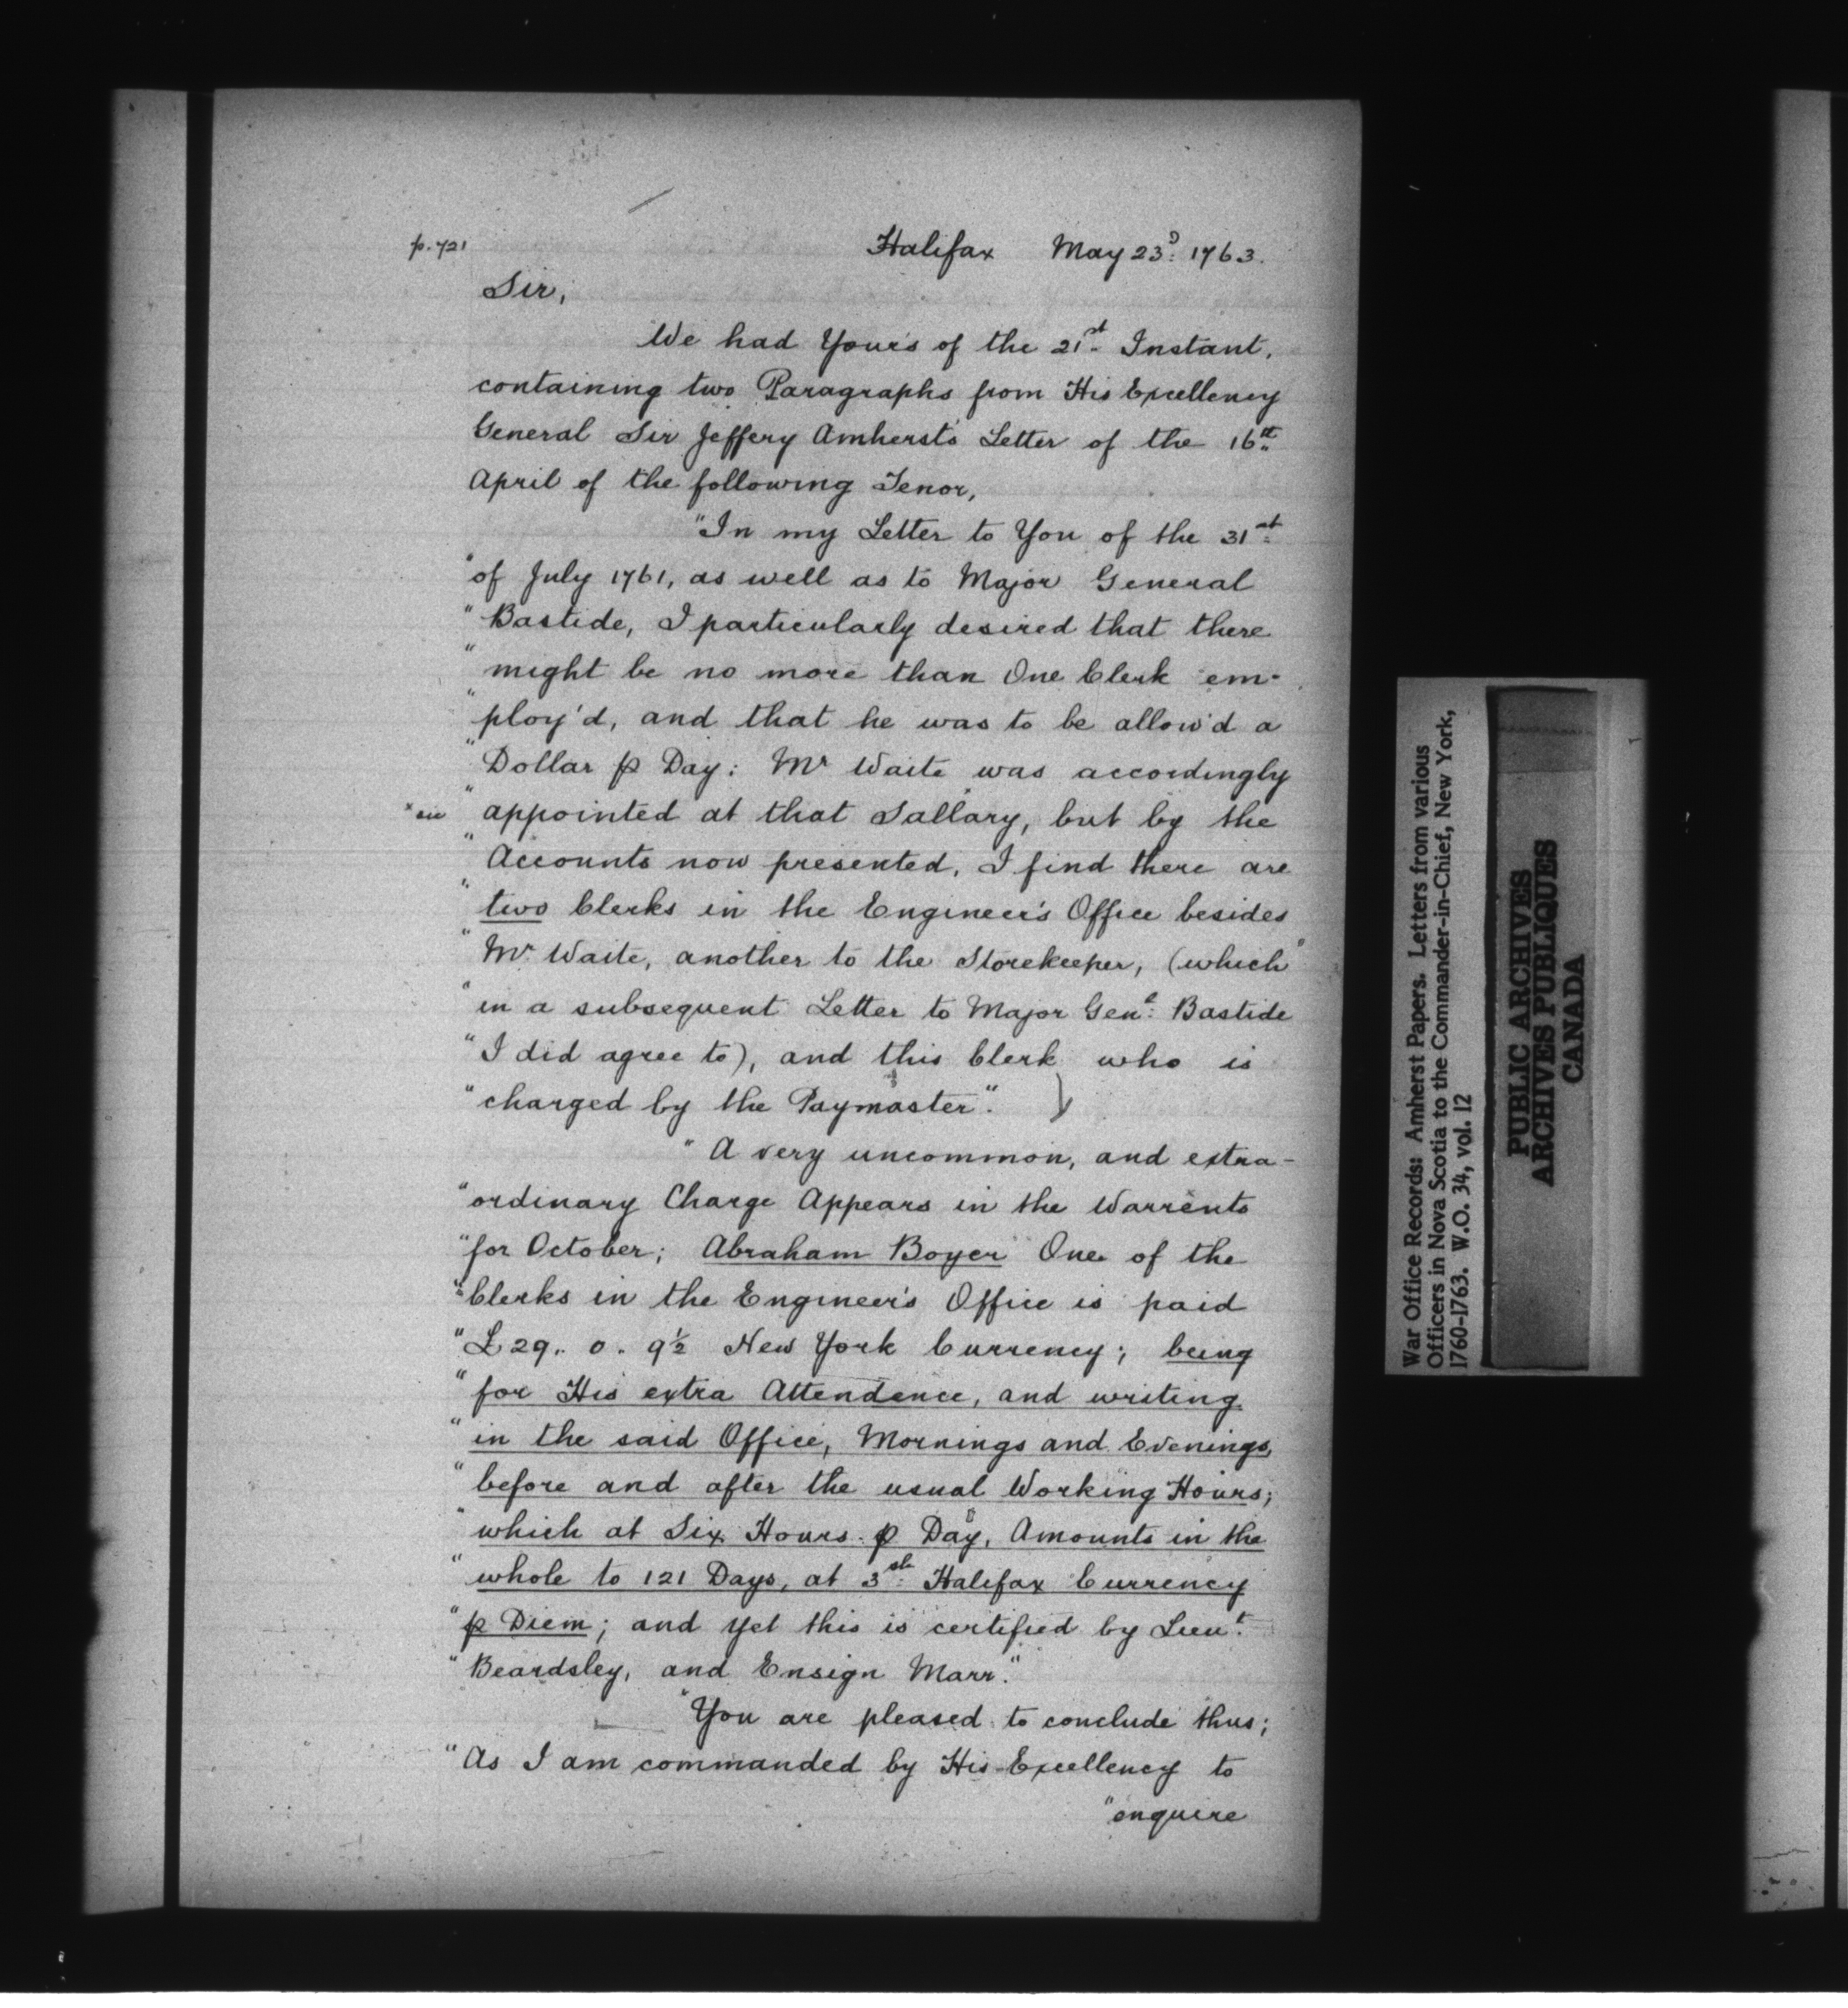 p. 721
Halifax May 23.D 1763.
Sir,
We had Your's of the 21st Instant,
containing two Paragraphs from His Excellency
General Sir Jeffery Amherst's Letter of the 16th
April of the following Tenor,
"In my Letter to You of the 31st
"of July 1761, as well as to Major General
"Bastide, I particularly desired that there
"might be no more than One Clerk em-
"ploy'd, and that he was to be allow'd a
"Dollar p Day: Mr Waite was accordingly
* sic "appointed at that Sallary, but by the
"Accounts now presented, I find there are
"two Clerks in the Engineer's Office besides
"Mr Waite, another to the Storekeeper, (which"
"in a subsequent Letter to Major Genl: Bastide
"I did agree to), and this Clerk who is
"charged by the Paymaster".
"A very uncommon, and extra-
"ordinary Charge Appears in the Warrents
"for October; Abraham Boyer One of the
"Clerks in the Engineer's Office is paid
"£29.. 0.. 9½ New York Currency; being
"for His extra Attendence, and writing
"in the said Office, Mornings and Evenings,
"before and after the usual Working Hours;
"which at Six Hours p Day, Amounts in the
"whole to 121 Days, at 3sh: Halifax Currency
"p Diem; and yet this is certified by Lieut:
"Beardsley, and Ensign Marr."
"You are pleased to conclude thus;
"As I am commanded by His Excellency to
"enquire
War Office Records: Amherst Papers. Letters from various
Officers in Nova Scotia to the Commander-in-Chief, New York,
1760-1763. W.O. 34, vol. 12
PUBLIC ARCHIVES
ARCHIVES PUBLIQUES
CANADA